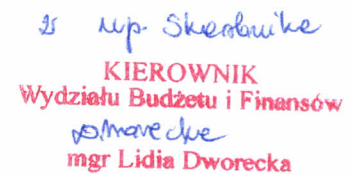 z up. Skarbnika
KIEROWNIK
Wydziału Budżetu i Finansów
mgr Lidia Dworecka